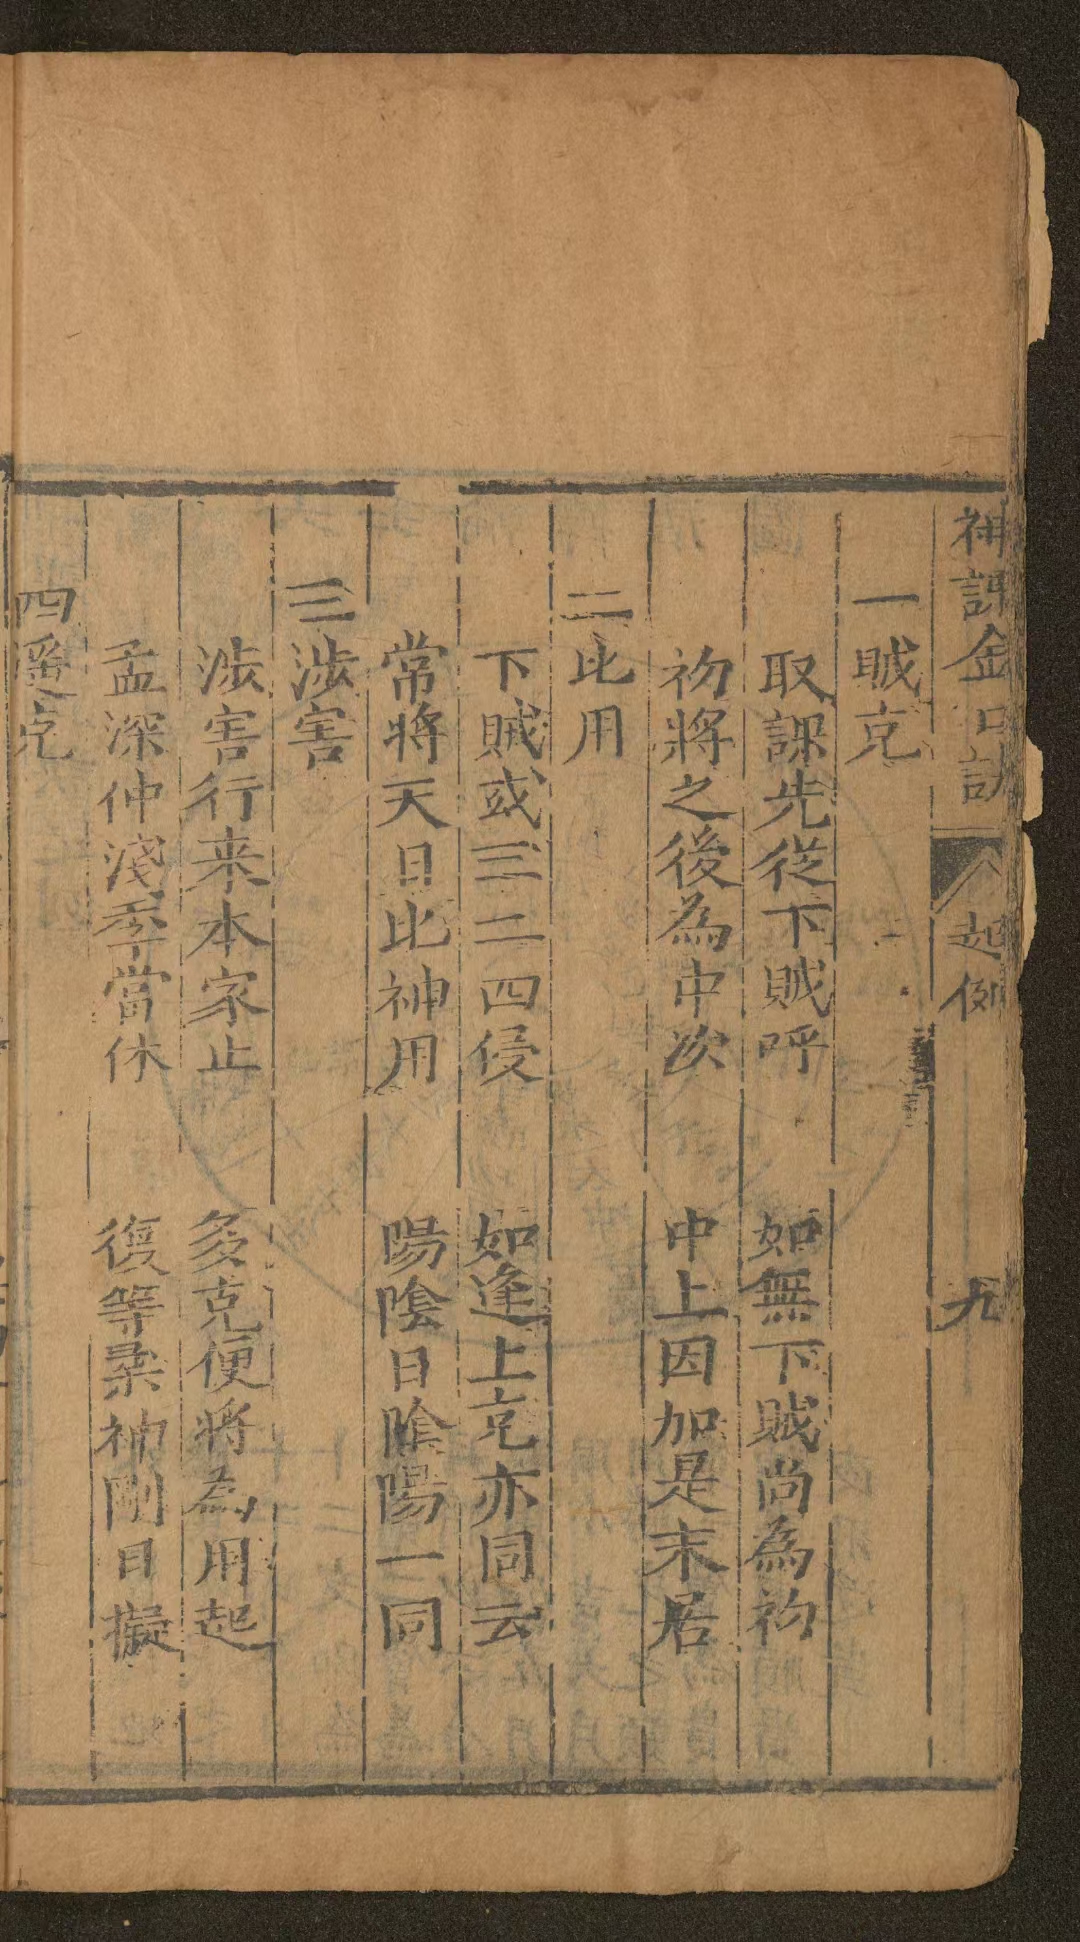 神課金口訣 起例 九
一賊克
取課先從下賊呼 如無下賊尚為初
初將之後為中次 中上因加是末居
二比用
下賊或三二四侵 如逢上克亦同云
常將天日比神用 陽陰日陰陽一同
三涉害
涉害行来本家止 多克便將為用起
孟深仲淺季當休 復等柔神剛日擬
四遥克